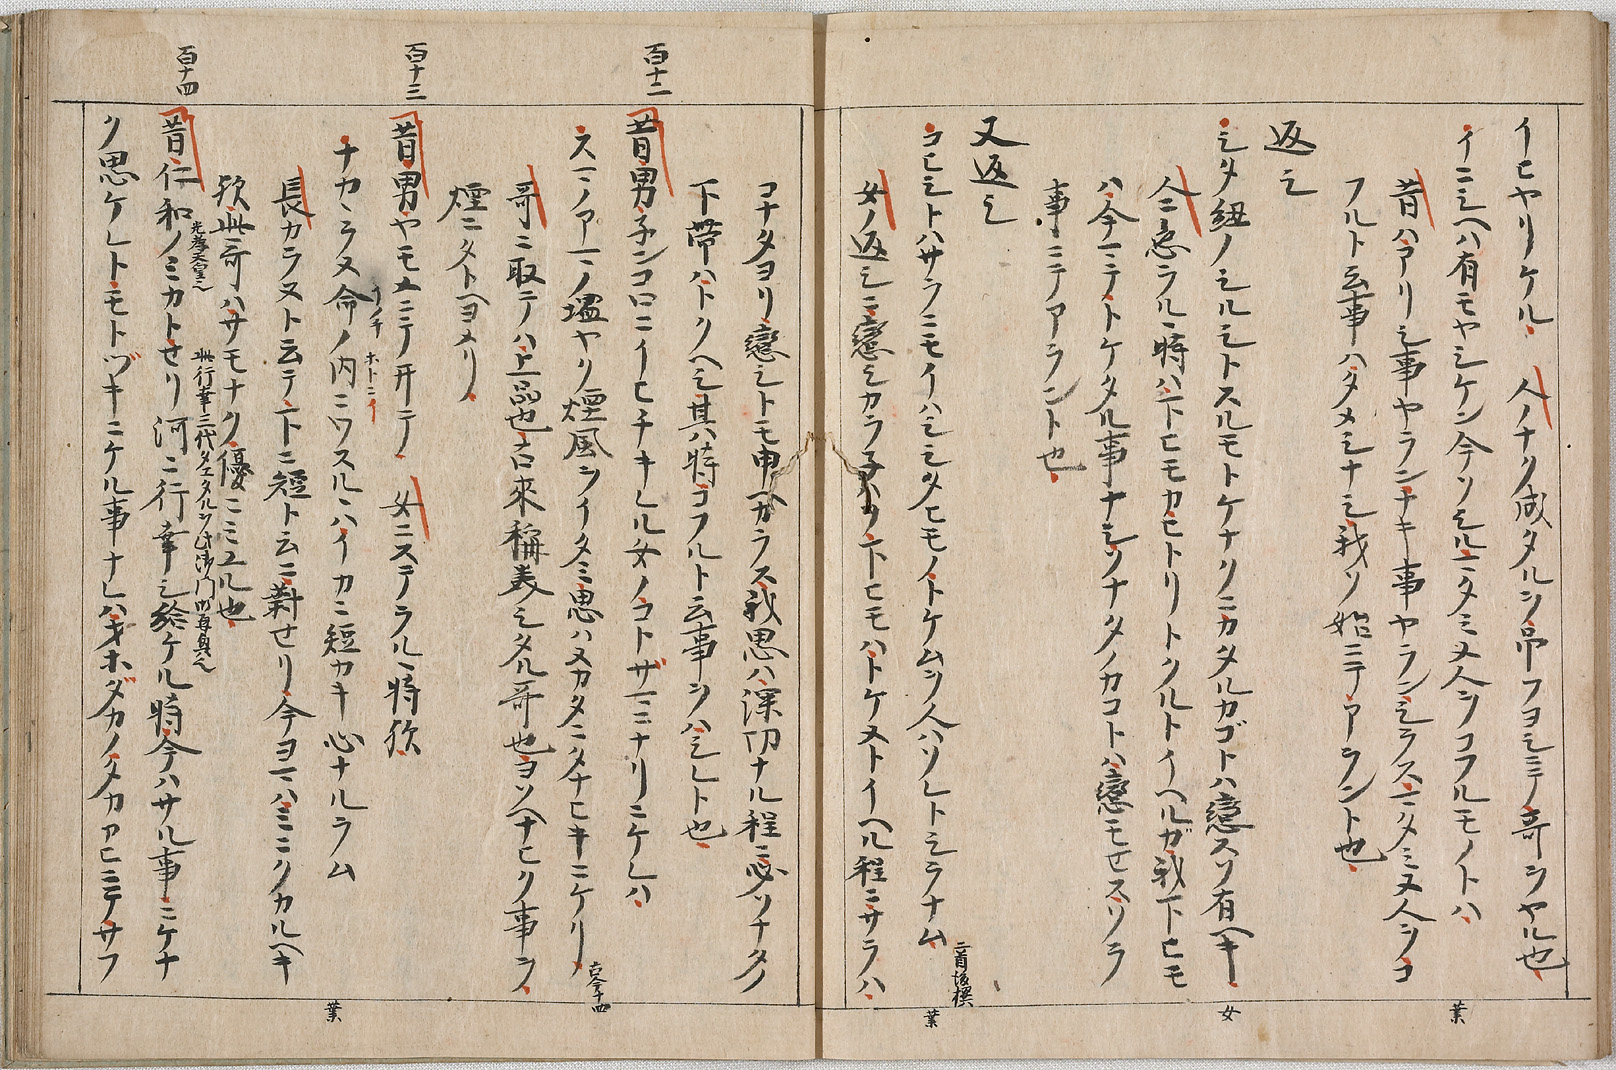 イヒヤリケル 人ノナク成タルヲ吊フヨシミノ哥ヲヤル也
イニシヘハ有モヤシケン今ソシルマタミヌ人ヲコフルモノトハ
葉
昔ハアリシ事ヤランナキ事ヤランシラスマタミヌ人ヲコ
フルト云事ハタメシナシ我ソ始ニテアラント也
返シ
シタ紐ノシルシトスルモトケナクニカタルカゴトハ戀スソ有ヘキ
女
人ニ戀ラルヽ時ハ下ヒモカヒトリトクルトイヘルガ我下ヒモ
ハ今マテトケタル事ナシソナタノカコトハ戀モセスソラ
事ニテアラント也
又返シ
コヒシトハサラニモイハシシタヒモノトケムヲ人ハソレトシラナム
二首後撰
葉
女ノ返シニ戀シカラ子ハソ下ヒモハトケヌトイヘル程ニサラハ
コナタヨリ戀シトモ申ヘカラス我思ハ深切ナル程ニ必ソナタノ
下帶ハトクヘシ其時コフルト云事ヲハシレト也
百十二
昔男子ンコロニイヒチキレル女ノコトザマニナリニケレハ
スマノアマノ塩ヤク煙風ヲイタミ思ハヌカタニタナヒキニケリ
古今十四
哥ニ取テハ上品也古来稱美シタル哥也ヨソヘナヒク事ヲ
煙ニタトヘヨメリ
百十三
昔男ヤモメニテ井テ 女ニステラルヽ時歟
ナカヽラヌ命ノ内ニワスルヽハイカニ短カキ心ナルラム
イノチ ホトニイ
葉
長カラヌト云テ下ニ短ト云ニ對セリ今ヨマハミニクカルヘキ
歟此哥ハサモナク優ニミユル也
百十四
昔仁和ノミカトせリ河ニ行幸シ給ケル時今ハサル事ニケナ
光孝天皇ヘ
ク思ケレトモトヅキニケル事ナレハオホダカノタカアヒニテサフ